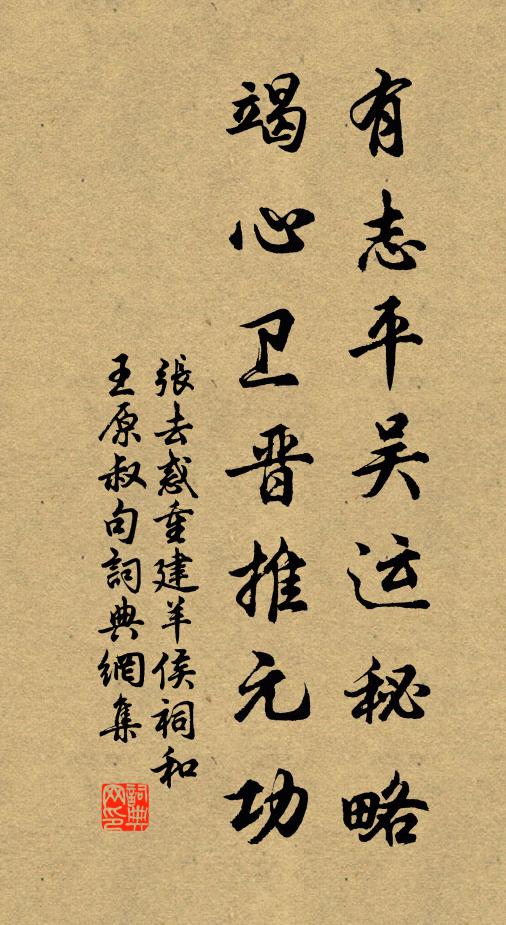 有志平吴运秘略
竭心卫晋推元功
張去惑重建羊侯祠和
王原叔句詞典網集
詞典网印